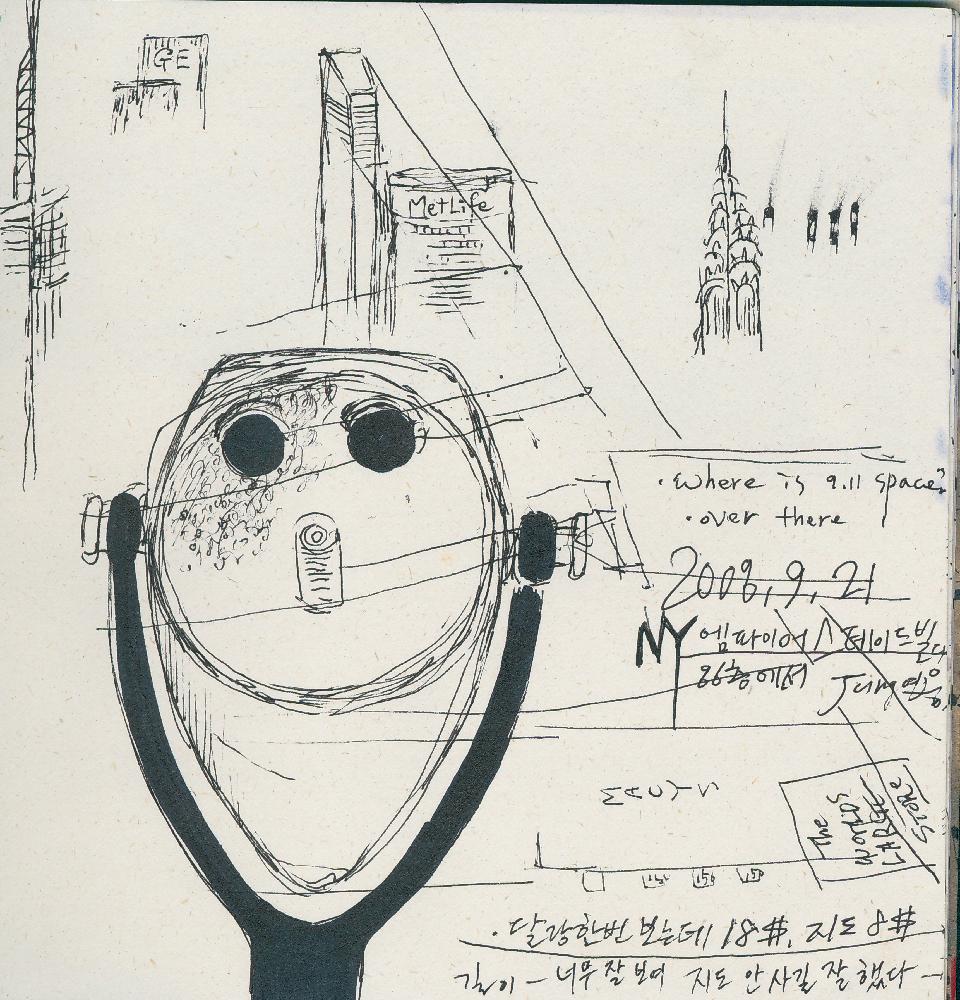 GE
MetLife
· where is 9.11 space?
· over there
2008, 9, 21
NY 엠파이어 스테이트빌딩
86층에서
Jung연웅
MACYS
The
WORLD'S
LARGE
Store
· 달랑한번 보는데 18#, 지도 8#
길이 - 너무 잘 보여 지도 안사길 잘 했다 -